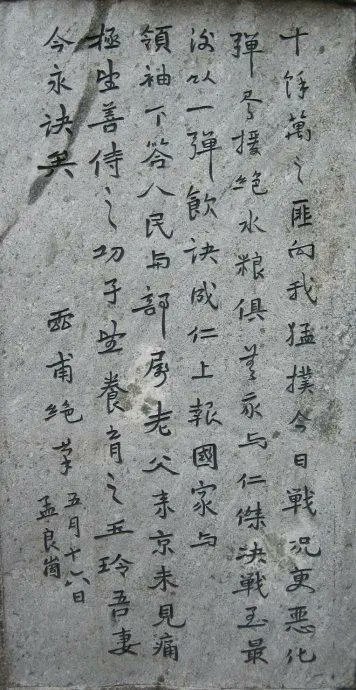 十餘萬之匪向我猛撲今日戰況更惡化
彈尽援絶水粮俱無我与仁傑決戰至最
後以一彈飲訣成仁上報國家与
領袖下答人民与部屬老父来京未見痛
極望善待之幼子望養育之玉玲吾妻
今永訣矣
灵甫絶筆
五月十六日
孟良崮